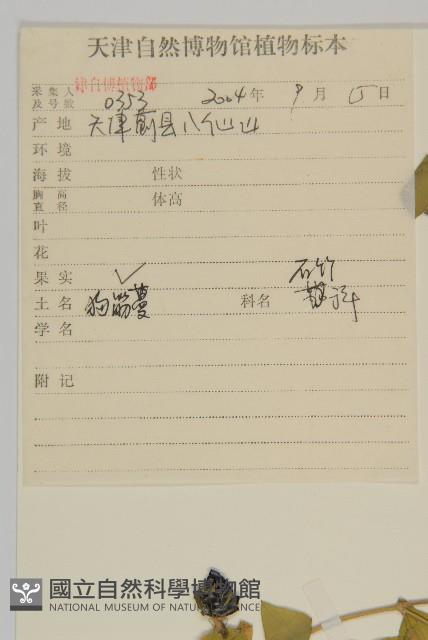 天津自然博物馆植物标本
津自博植物部
采集人及号数 0353 2004年 9月 15日
产地 天津蓟县八仙山
环境
海拔 性状
胸高直径 体高
叶
花
果实 ✓ 石竹
土名 狗筋蔓 科名
学名
附记
國立自然科學博物館
NATIONAL MUSEUM OF NATURAL SCIENCE